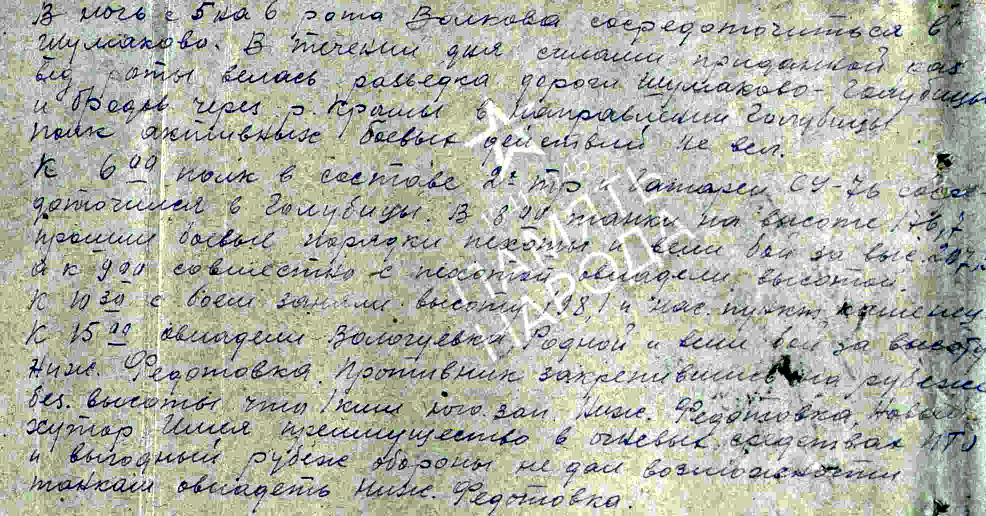 В ночь с 5 на 6 рота Волкова сосредоточиться в
Шумаково. В течении дня силами приданной каз
вед роты велась разведка дороги Шумаково - Голубицы
и броды через р. Крамы в направлении Голубицы
полк активных боевых действий не вел.
К 6 00 полк в составе 2х тр и батареи СУ-76 сосре
доточился в Голубицы. В 8 00 танки на высоте 176,7
прошли боевые порядки пехоты и вели бой за выс. 207,
а к 9 00 совместно с пехотой овладели высотой.
К 10 30 с боем заняли высоту 198,1 и нас. пункт
К 15 00 овладели Вологуевка, Родной и вели бой за высоту
Ниж. Федотовка. Противник закрепившись на рубеже
без. высоты что 1 клм юго. зап. Ниж. Федотовка,
хутор Имея преимущество в огневых средствах ПТО
и выгодный рубеж обороны не дал возможности
танкам овладеть Ниж. Федотовка.
ПАМЯТЬ
НАРОДА